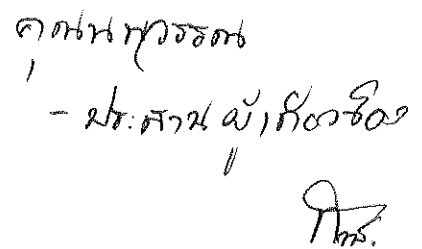 คุณนพวรรณ
- ประสาน ผู้เกี่ยวข้อง